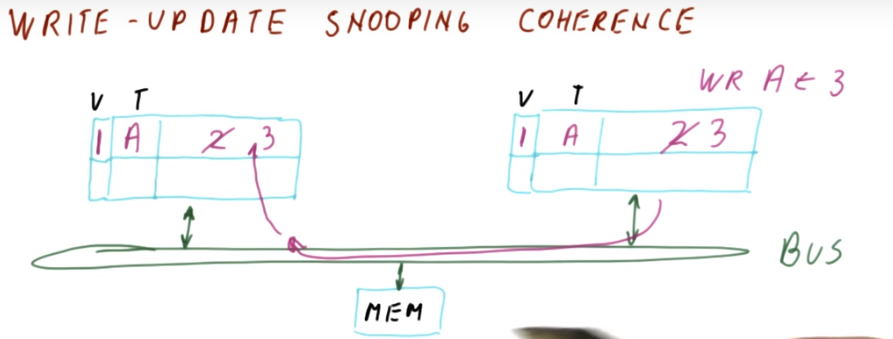 WRITE-UPDATE SNOOPING COHERENCE
WR A ← 3
V T
V T
1 A 2 3
1 A 2 3
BUS
MEM